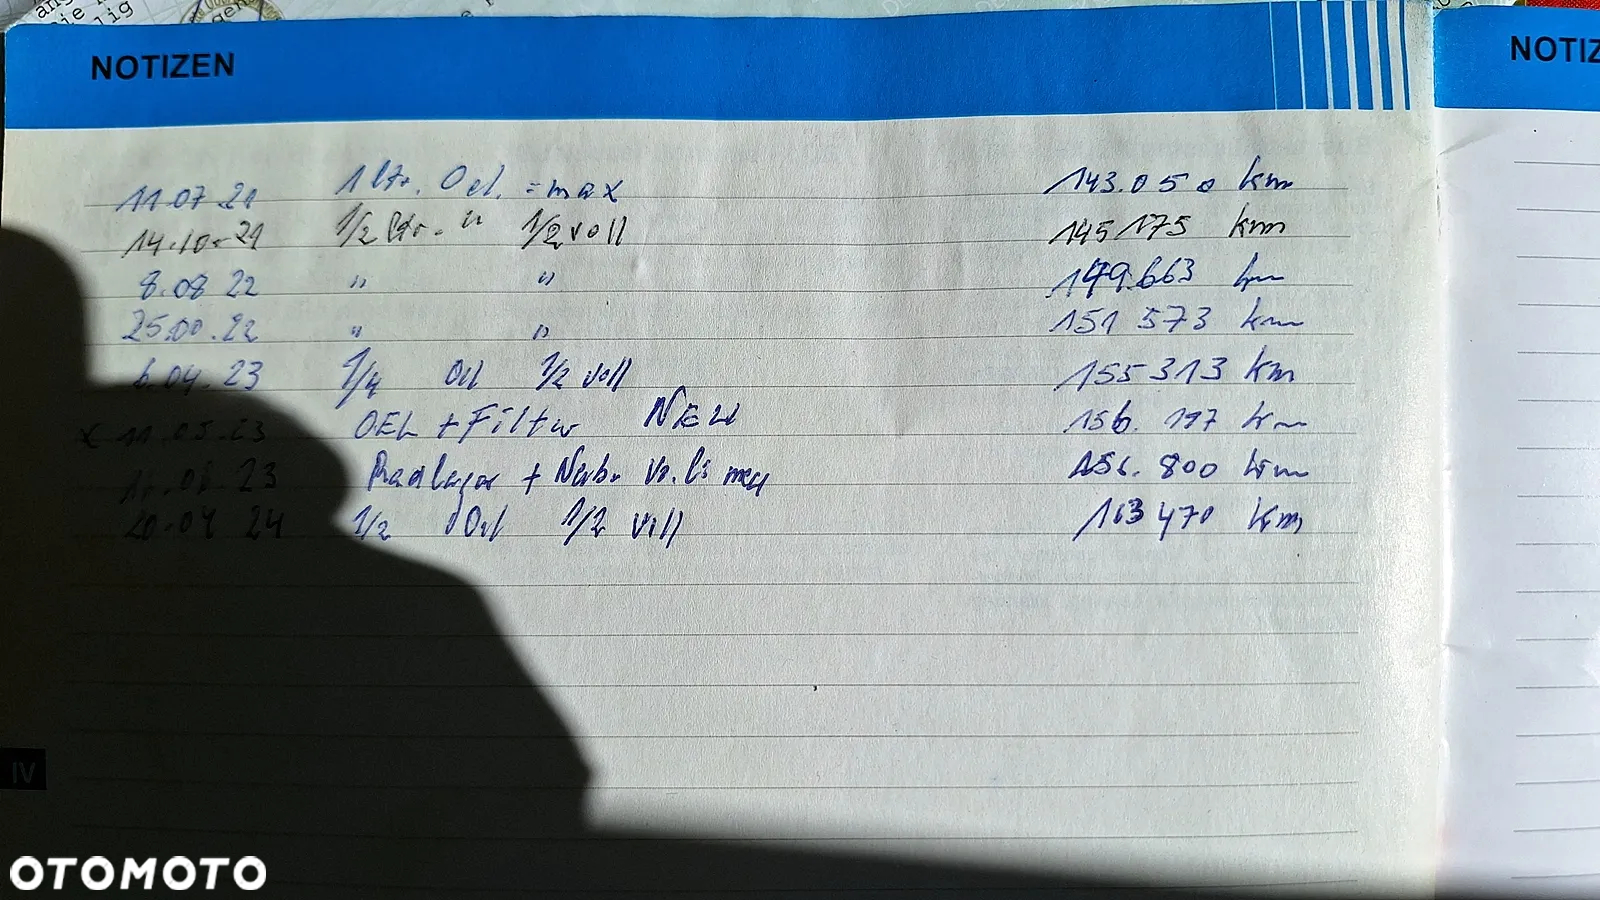 NOTIZEN
NOTIZ
11.07.21 1 ltr. Oel. = max 143.050 km
14.10.21 1/2 ltr. " 1/2 voll 145175 km
8.08 22 " " 149.663 km
25.00.22 " " 151 573 km
6.04.23 1/4 Oel 1/2 voll 155313 km
x 11.05.23 OEL + Filter NEU 156.197 km
23 Radlager + Nabe Vo. li neu 156.800 km
20.04 24 1/2 Oel 1/2 voll 163470 km
IV
OTOMOTO